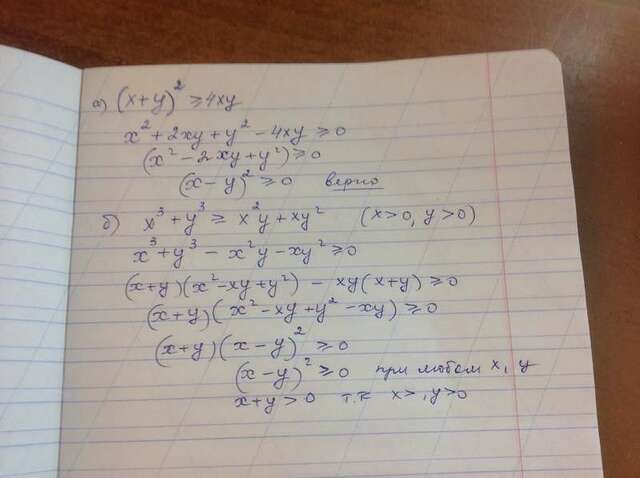 а) (x+y)² ≥ 4xy
x² + 2xy + y² - 4xy ≥ 0
(x² - 2xy + y²) ≥ 0
(x-y)² ≥ 0 верно
б) x³ + y³ ≥ x²y + xy² (x>0, y>0)
x³ + y³ - x²y - xy² ≥ 0
(x+y)(x²-xy+y²) - xy(x+y) ≥ 0
(x+y)(x²-xy+y²-xy) ≥ 0
(x+y)(x-y)² ≥ 0
(x-y)² ≥ 0 при любом x, y
x+y > 0 т.к x>, y>0